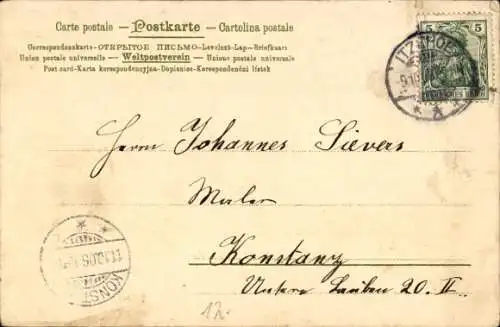 Carte postale – Postkarte – Cartolina postale
Correspondenzkarte – ОТКРЫТОЕ ПИСЬМО – Levelező-Lap – Briefkaart
Union postale universelle – Weltpostverein – Unione postale universale
Post card – Karta korespondencyjna – Dopisnice – Korespondenční lístek
5 5
ITZEHOE
Herrn Johannes Sievers
Maler
Konstanz
Untere Lauben 20. II.
11.10.06
KONST
12.-